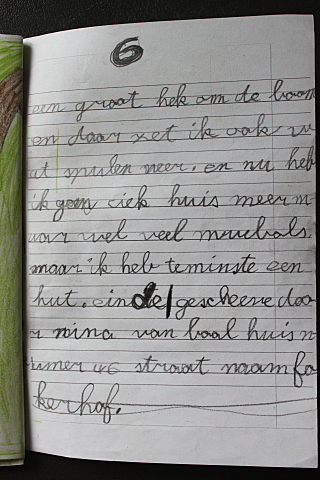 6
een groat hek om de boom
en daar zet ik ook w
at spulen neer. en nu heb
ik geen ciek huis meer m
aar wel veel
maar ik heb teminste een
hut. einde/gescheeve doo
r nina van baal huis n
umer straat naam fo
kerhof.